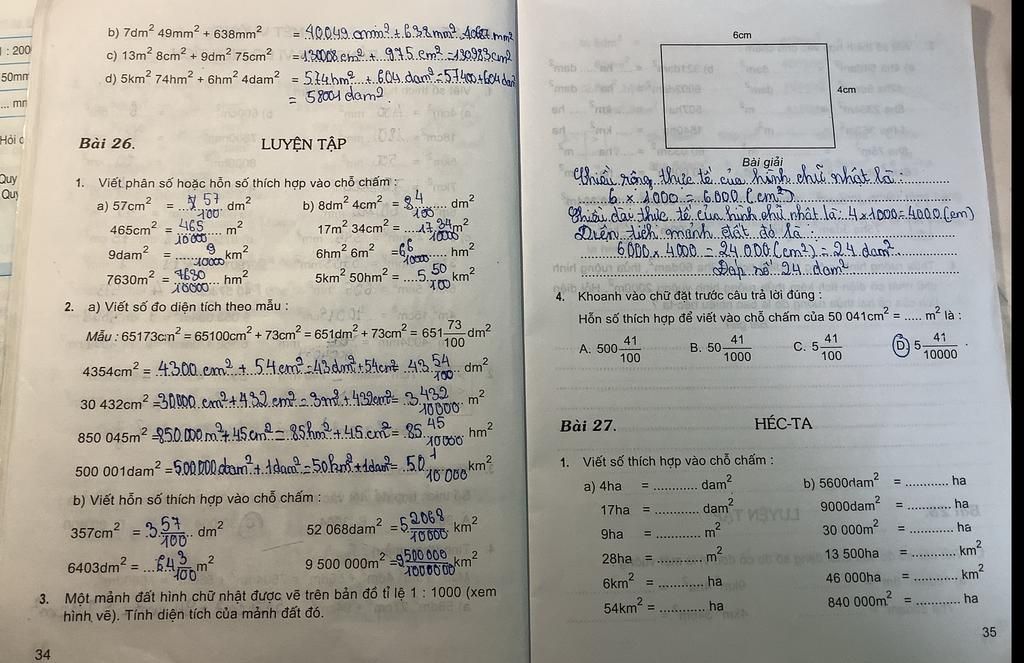 1 : 200
50mm
... mm
Hỏi
Quy
Quy
b) 7dm² 49mm² + 638mm² = 70049 mm² + 638 mm² = 70687 mm²
c) 13m² 8cm² + 9dm² 75cm² = 130008cm² + 975 cm² = 130983cm²
d) 5km² 74hm² + 6hm² 4dam² = 574hm² + 604 dam² = 57400 + 604 dam²
= 58001 dam².
Bài 26. LUYỆN TẬP
1. Viết phân số hoặc hỗn số thích hợp vào chỗ chấm :
a) 57cm² = 57/100 dm² b) 8dm² 4cm² = 8 4/100 dm²
465cm² = 465/10000 m² 17m² 34cm² = 17 34/10000 m²
9dam² = 9/10000 km² 6hm² 6m² = 6 6/10000 hm²
7630m² = 7630/10000 hm² 5km² 50hm² = 5 50/100 km²
2. a) Viết số đo diện tích theo mẫu :
Mẫu : 65173cm² = 65100cm² + 73cm² = 651dm² + 73cm² = 651 73/100 dm²
4354cm² = 4300 cm² + 54cm² = 43dm² + 54cm² = 43 54/100 dm²
30 432cm² = 30000 cm² + 432 cm² = 3m² + 432cm² = 3 432/10000 m²
850 045m² = 850.000m² + 45cm² = 85hm² + 45 cm² = 85 45/10000 hm²
500 001dam² = 500 000dam² + 1dam² = 50km² + 1dam² = 50 1/10000 km²
b) Viết hỗn số thích hợp vào chỗ chấm :
357cm² = 3 57/100 dm² 52 068dam² = 5 2068/10000 km²
6403dm² = 64 3/100 m² 9 500 000m² = 9 500 000/1000000 km²
3. Một mảnh đất hình chữ nhật được vẽ trên bản đồ tỉ lệ 1 : 1000 (xem
hình vẽ). Tính diện tích của mảnh đất đó.
34
6cm
4cm
Bài giải
Chiều rộng thực tế của hình chữ nhật là :
6 x 1000 = 6000 (cm²)
Chiều dài thực tế của hình chữ nhật là: 4 x 1000 = 4000 (cm)
Diện tích mảnh đất đó là :
6000 x 4000 = 24.000 (cm²) = 24 dam²
Đáp số 24 dam²
4. Khoanh vào chữ đặt trước câu trả lời đúng :
Hỗn số thích hợp để viết vào chỗ chấm của 50 041cm² = ..... m² là :
A. 500 41/100 B. 50 41/1000 C. 5 41/100 D. 5 41/10000
Bài 27. HÉC-TA
1. Viết số thích hợp vào chỗ chấm :
a) 4ha = ............ dam² b) 5600dam² = ............ ha
17ha = ............ dam² 9000dam² = ............ ha
9ha = ............ m² 30 000m² = ............ ha
28ha = ............ m² 13 500ha = ............ km²
6km² = ............ ha 46 000ha = ............ km²
54km² = ............ ha 840 000m² = ............ ha
35